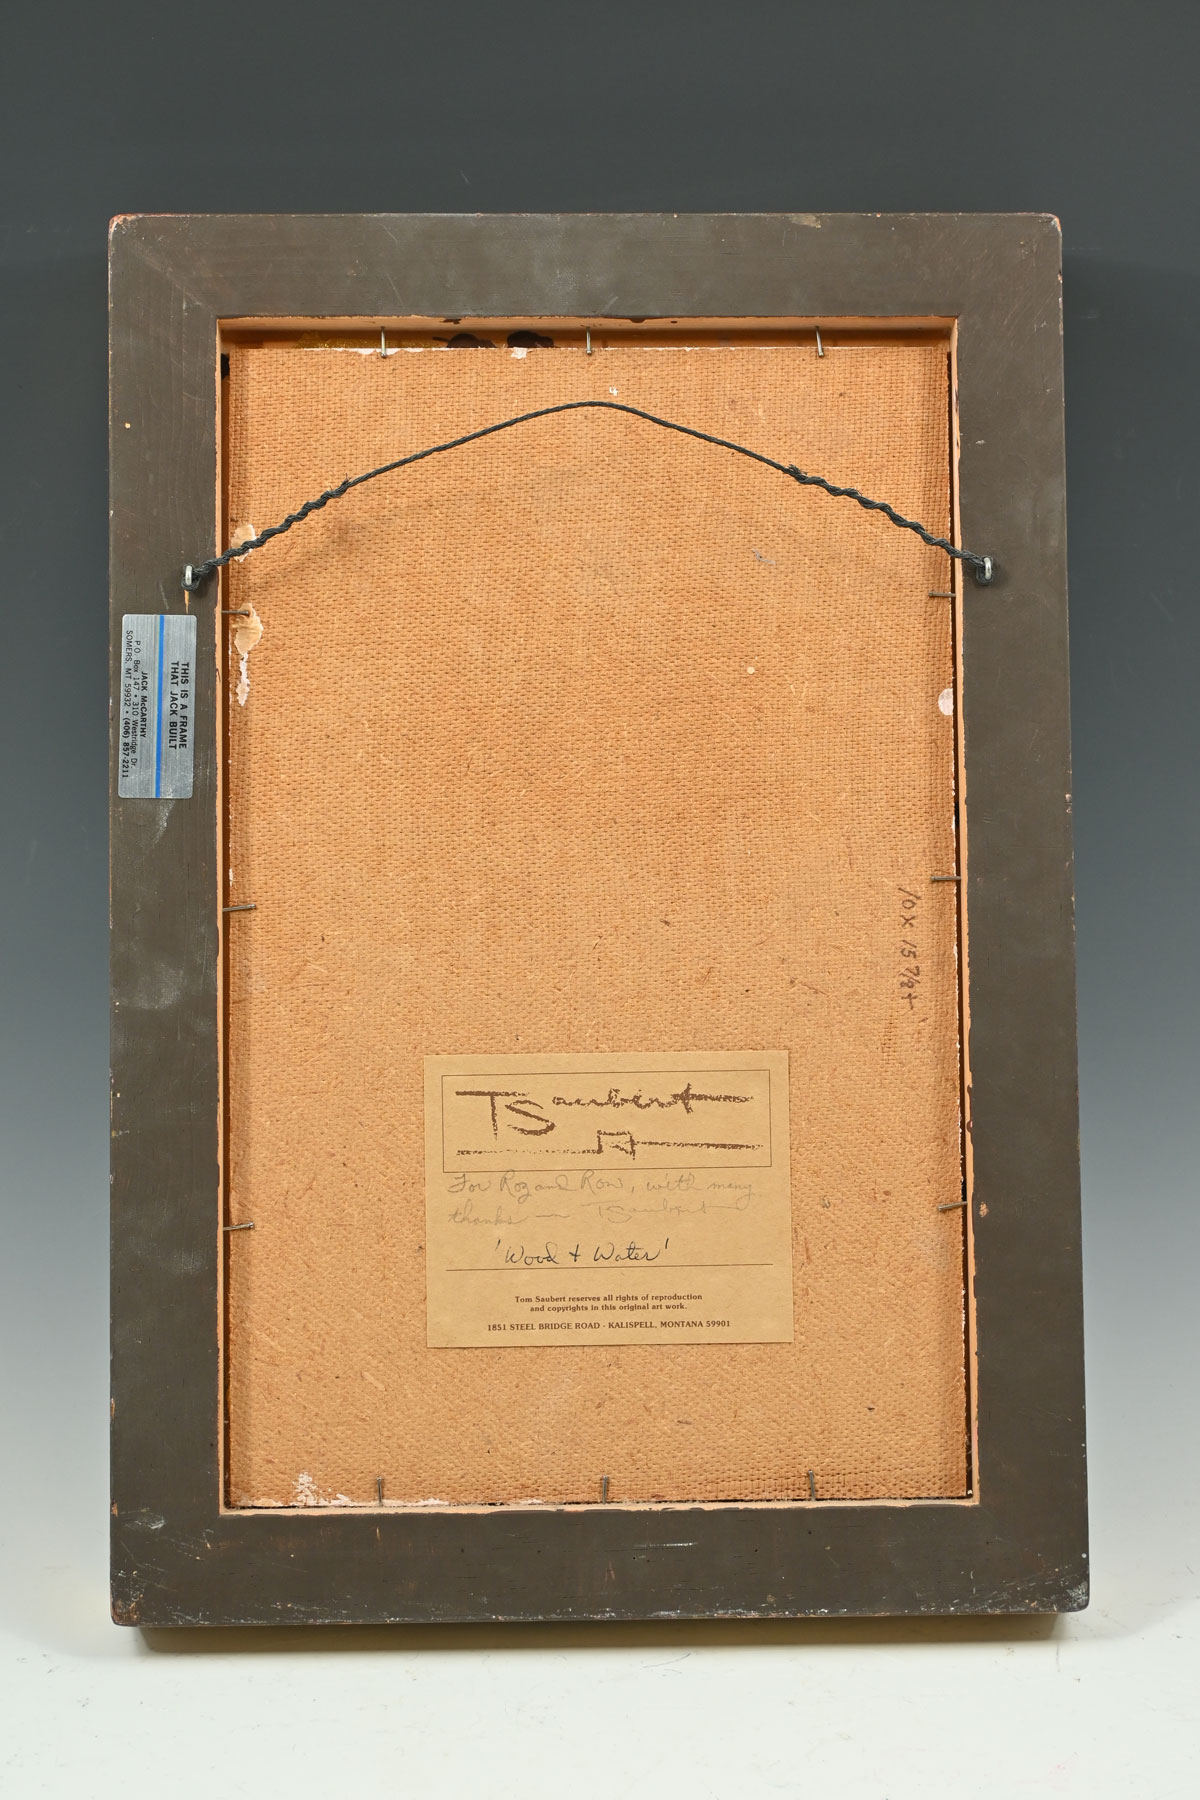 THIS IS A FRAME
THAT JACK BUILT
JACK McCARTHY
P.O. Box 147 • 310 Westridge Dr.
SOMERS, MT 59932 • (406) 857-2211
10 x 15 7/8 +
TSaubert
For Roz and Ron, with many
thanks — TSaubert
'Wood + Water'
Tom Saubert reserves all rights of reproduction
and copyrights in this original art work.
1851 STEEL BRIDGE ROAD - KALISPELL, MONTANA 59901